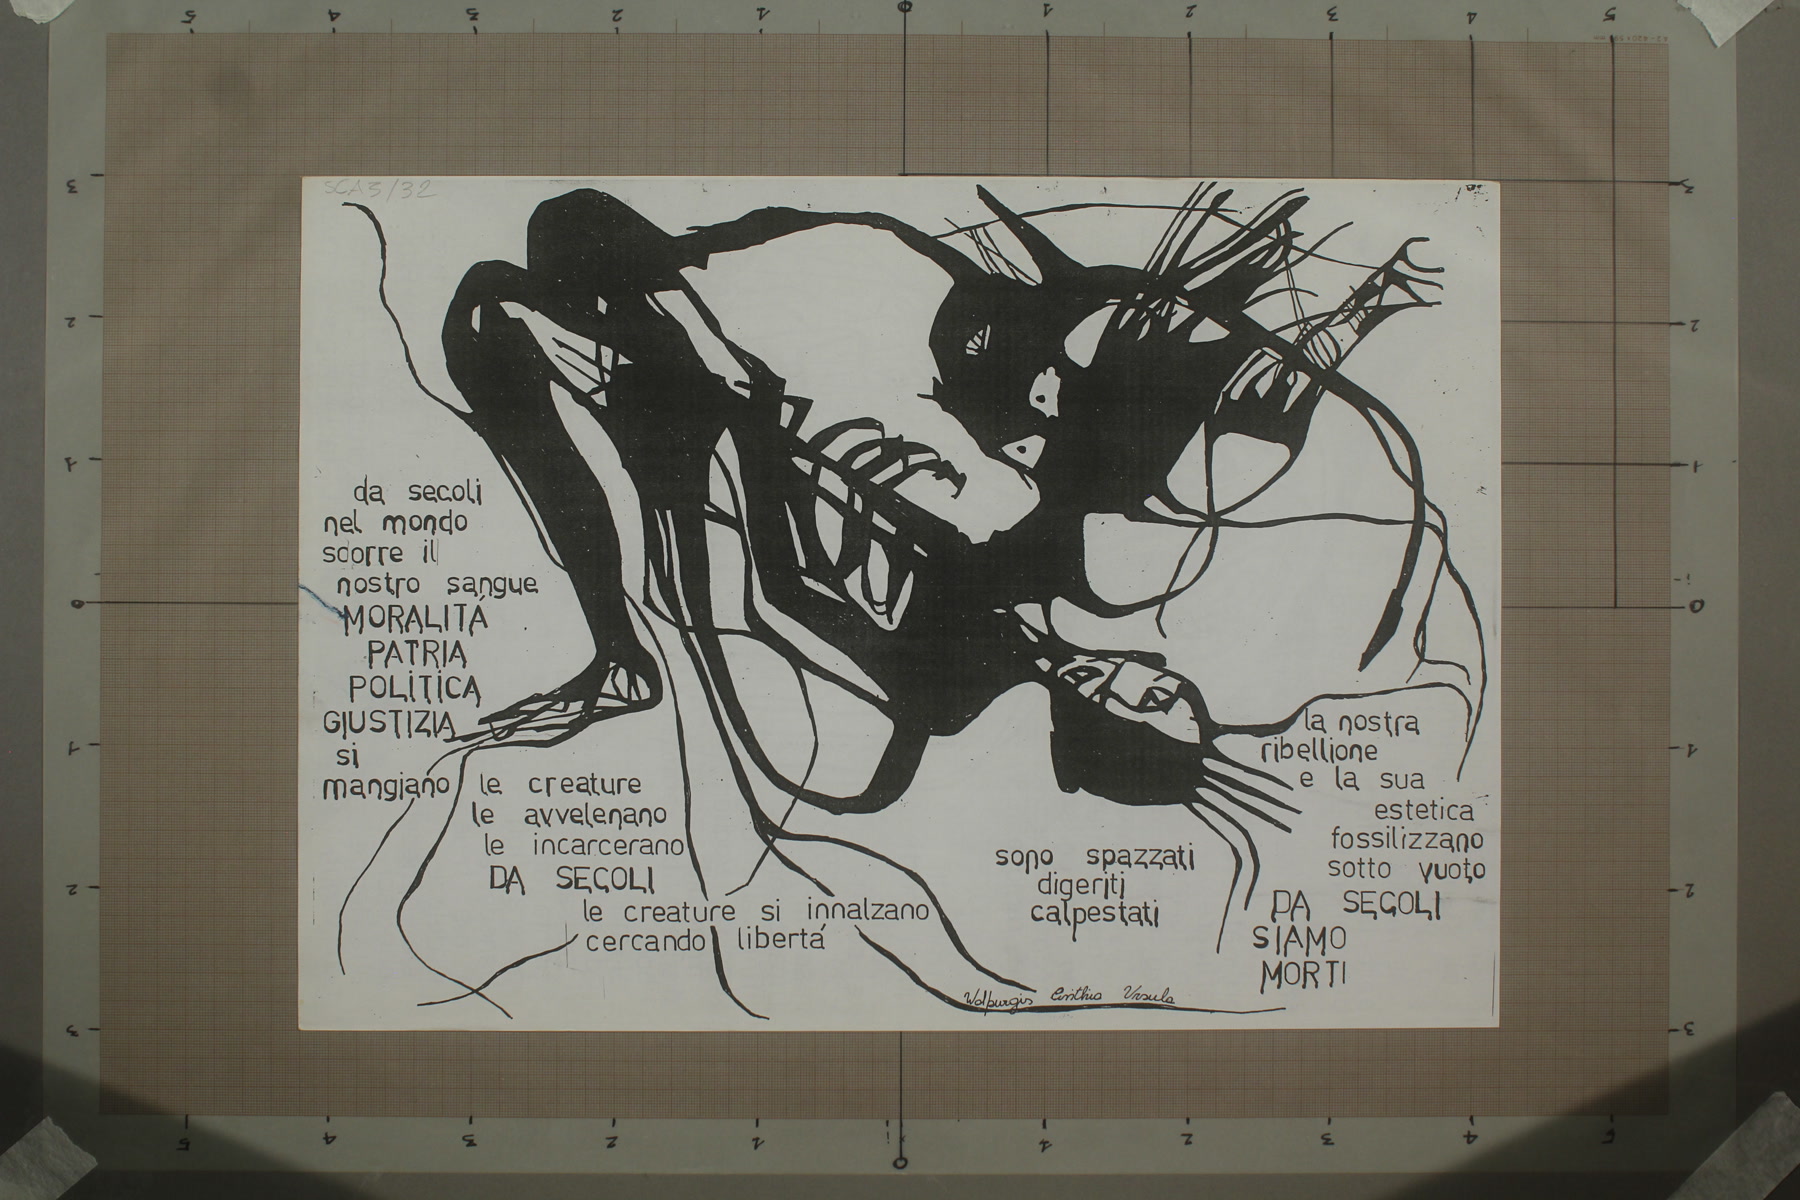 SCA3/32
da secoli
nel mondo
scorre il
nostro sangue
MORALITÁ
PATRIA
POLITICA
GIUSTIZIA
si
mangiano
le creature
le avvelenano
le incarcerano
DA SECOLI
le creature si innalzano
cercando libertá
sono spazzati
digeriti
calpestati
la nostra
ribellione
e la sua
estetica
fossilizzano
sotto vuoto
DA SECOLI
SIAMO
MORTI
Walpurgis Cinthia Ursula
5 4 3 2 1 0 1 2 3 4 5
3
2
1
0
1
2
3
3
2
1
0
1
2
3
5 4 3 2 1 0 1 2 3 4 5